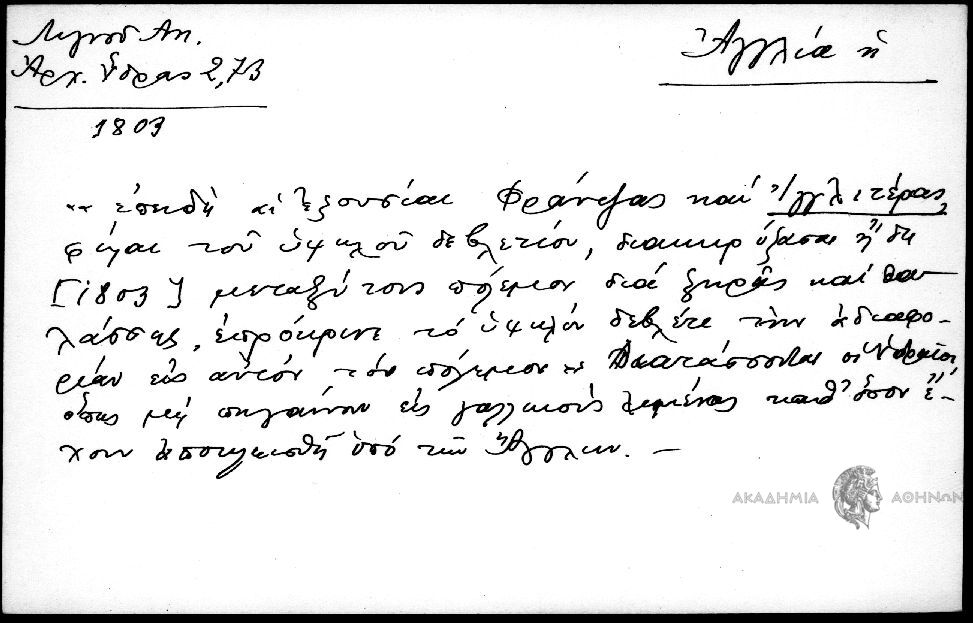 Λιγνοῦ Αντ.
Ἀρχ. Ὕδρας 2,73
1803
Ἀγγλία ἡ
«« ἐπειδὴ αἱ ἐξουσίαι Φράντζας καὶ Ἰγγλιτέρας,
φίλαι τοῦ ὑψηλοῦ δεβλετίου, διακηρύξασαι ἤδη
[1803] μεταξύ τους πόλεμον διά ξηρᾶς καὶ θα-
λάσσης, ἐπρόκρινε τὸ ὑψηλὸν δεβλέτι τὴν ἀδιαφο-
ρίαν εἰς αὐτὸν τὸν πόλεμον »» Διατάσσονται οἱ Ὑδραῖοι
ὅπως μὴ πηγαίνουν εἰς γαλλικοὺς λιμένας καθ' ὅσον ἔ-
χουν ἀποκλεισθῆ ὑπό τῶν Ἄγγλων. —
ΑΚΑΔΗΜΙΑ ΑΘΗΝΩΝ